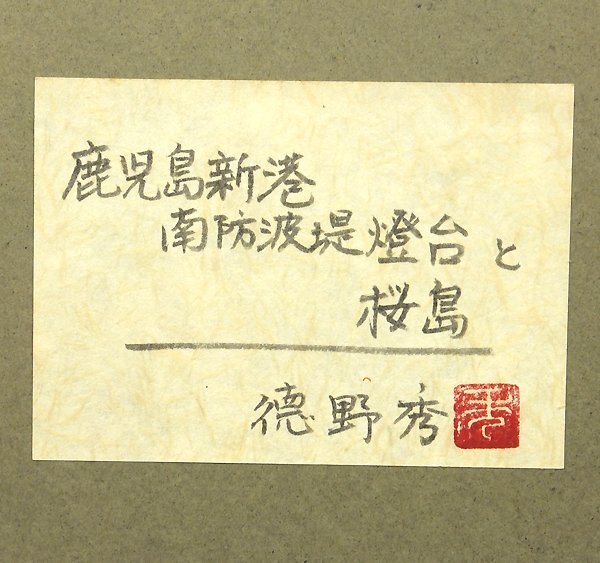 鹿児島新港
南防波堤燈台と
桜島
德野秀